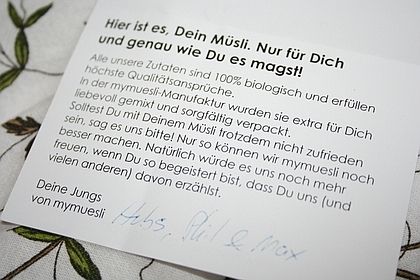 Hier ist es, Dein Müsli. Nur für Dich
und genau wie Du es magst!
Alle unsere Zutaten sind 100% biologisch und erfüllen
höchste Qualitätsansprüche.
In der mymuesli-Manufaktur wurden sie extra für Dich
liebevoll gemixt und sorgfältig verpackt.
Solltest Du mit Deinem Müsli trotzdem nicht zufrieden
sein, sag es uns bitte! Nur so können wir mymuesli noch
besser machen. Natürlich würde es uns noch mehr
freuen, wenn Du so begeistert bist, dass Du uns (und
vielen anderen) davon erzählst.
Deine Jungs
von mymuesli
Phil & Max